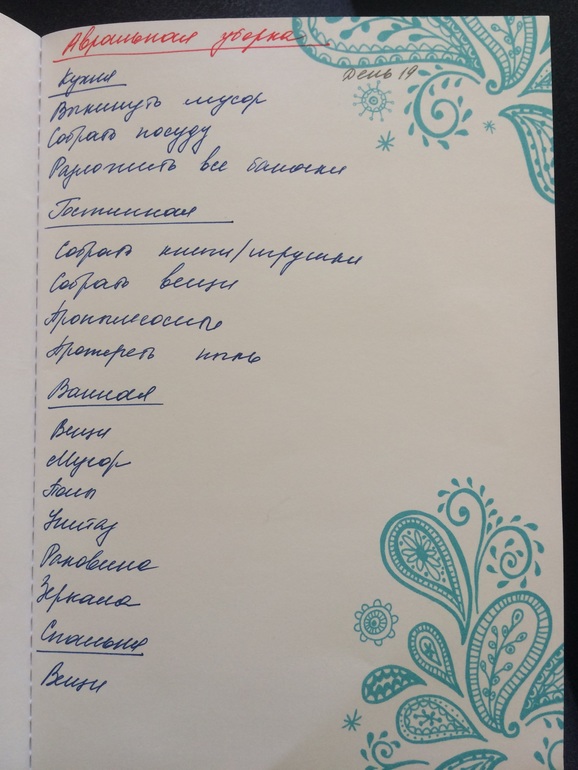 Авральная уборка
День 19
Кухня
Выкинуть мусор
Собрать посуду
Разложить все баночки
Гостинная
Собрать книги/игрушки
Собрать вещи
Пропылесосить
Протереть пыль
Ванная
Вещи
Мусор
Полы
Унитаз
Раковина
Зеркала
Спальня
Вещи